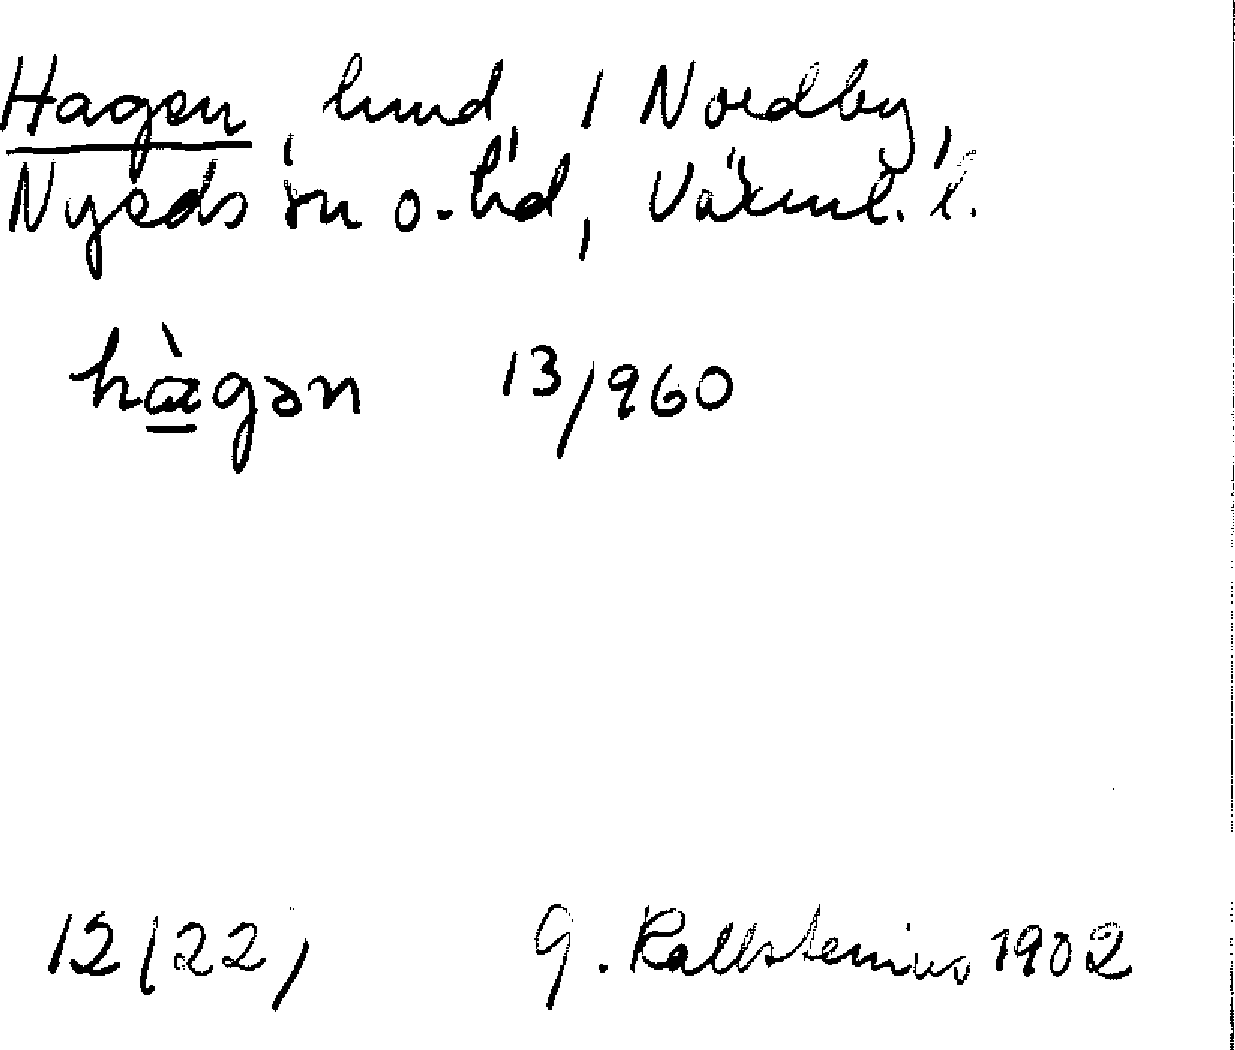 Hagen, lund, i Nordby,
Nyeds sn o. hd, Värml. l.
hàgən 13/960
12/22, G. Kallstenius 1902